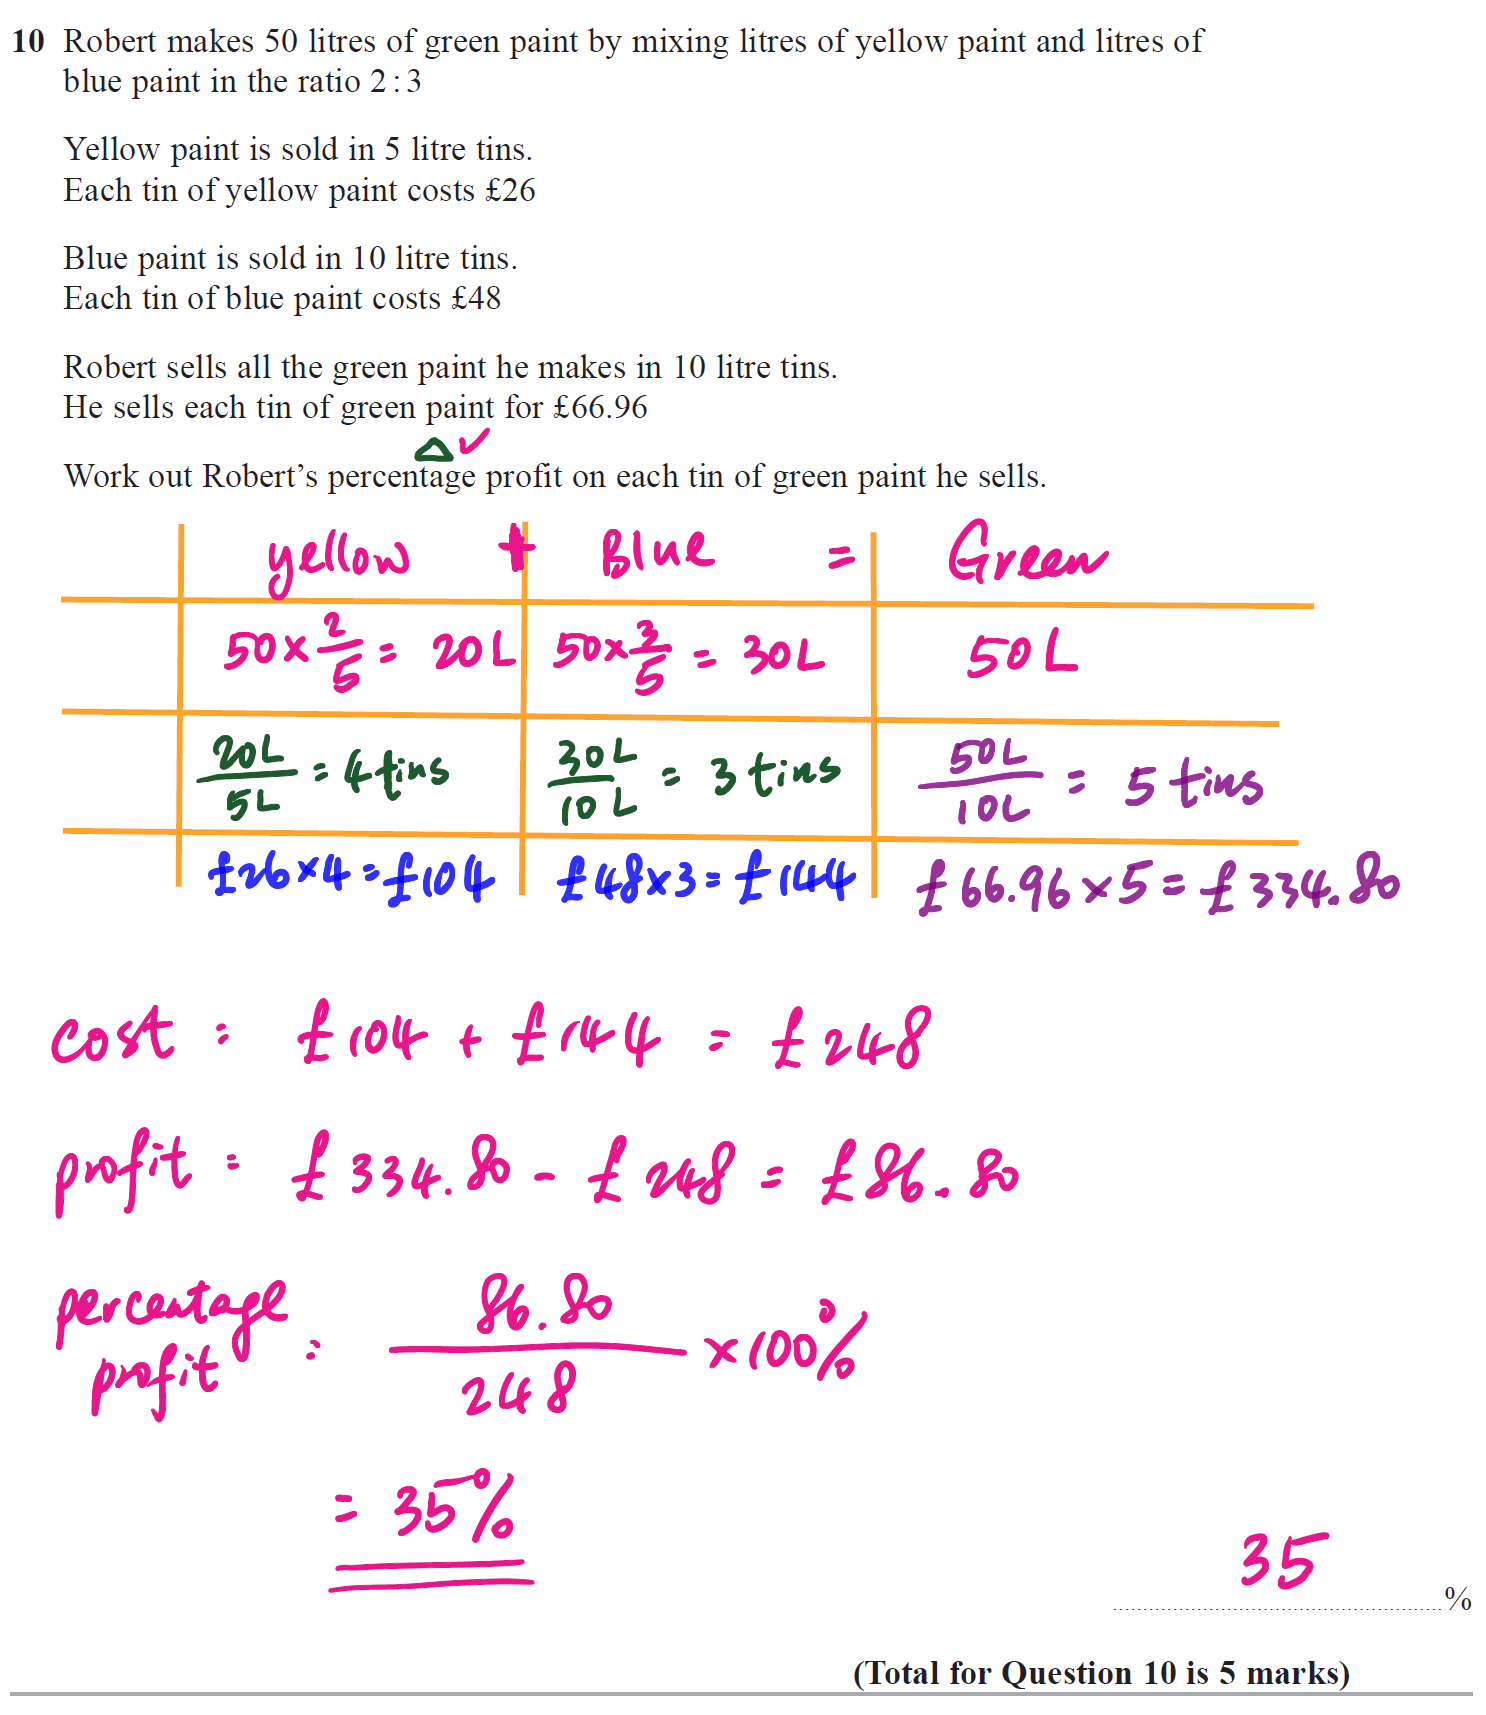 10 Robert makes 50 litres of green paint by mixing litres of yellow paint and litres of
blue paint in the ratio 2 : 3
Yellow paint is sold in 5 litre tins.
Each tin of yellow paint costs £26
Blue paint is sold in 10 litre tins.
Each tin of blue paint costs £48
Robert sells all the green paint he makes in 10 litre tins.
He sells each tin of green paint for £66.96
△ ✓
Work out Robert's percentage profit on each tin of green paint he sells.
yellow + Blue = Green
50 × 2/5 = 20L 50 × 3/5 = 30L 50L
20L/5L = 4 tins 30L/10L = 3 tins 50L/10L = 5 tins
£26 × 4 = £104 £48 × 3 = £144 £66.96 × 5 = £334.80
cost : £104 + £144 = £248
profit : £334.80 - £248 = £86.80
percentage profit : 86.80/248 × 100%
= 35%
35 %
(Total for Question 10 is 5 marks)